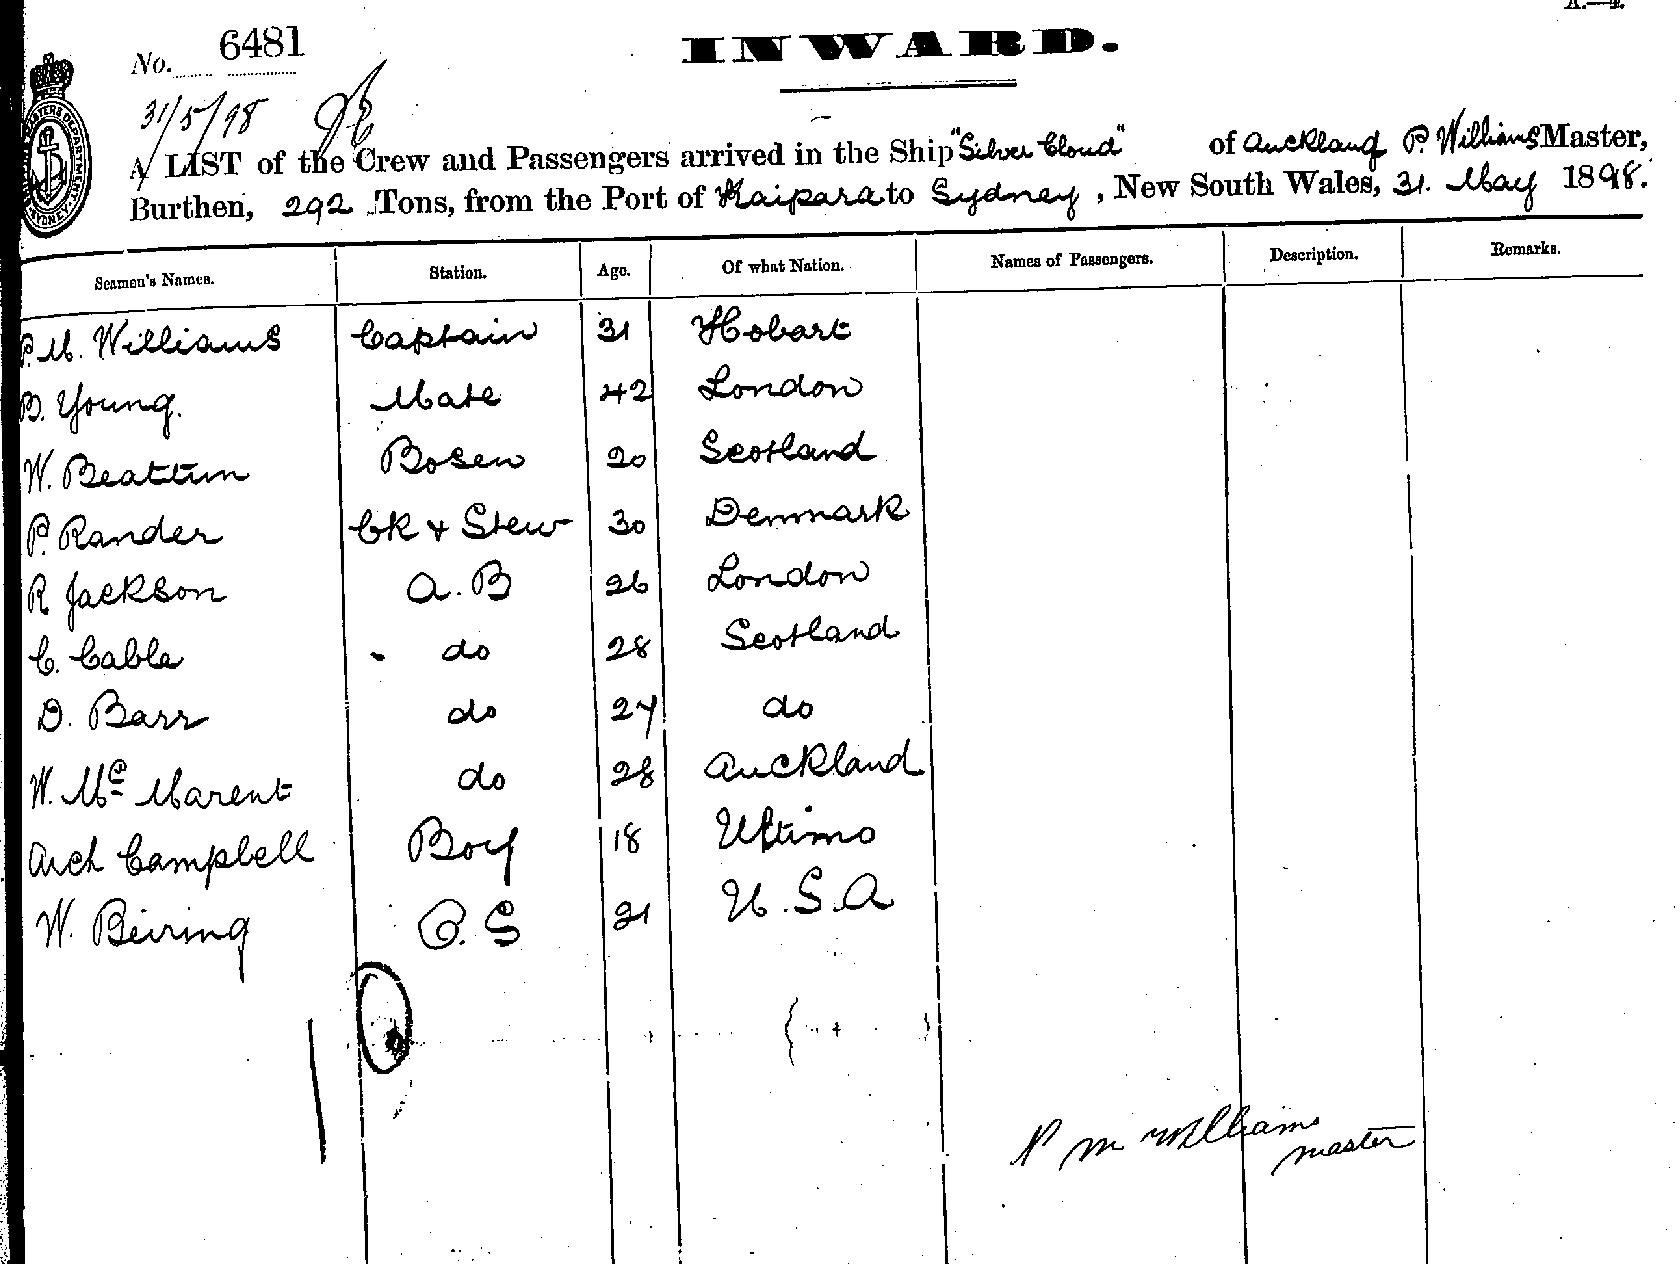 No. 6481
INWARD.
31/5/98
A LIST of the Crew and Passengers arrived in the Ship "Silver Cloud" of Auckland P. Williams Master,
Burthen, 292 Tons, from the Port of Kaipara to Sydney, New South Wales, 31. May 1898.
Seamen's Names. Station. Age. Of what Nation. Names of Passengers. Description. Remarks.
P. M. Williams Captain 31 Hobart
B. Young. Mate 42 London
W. Beattum Bosen 20 Scotland
P. Rander Ck + Stew 30 Denmark
R Jackson A. B 26 London
C. Cable do 28 Scotland
D. Barr do 27 do
W. Mc Marent do 28 Auckland
Arch Campbell Boy 18 Ultimo
W. Beiring O. S 21 U. S. A
P M Williams
master